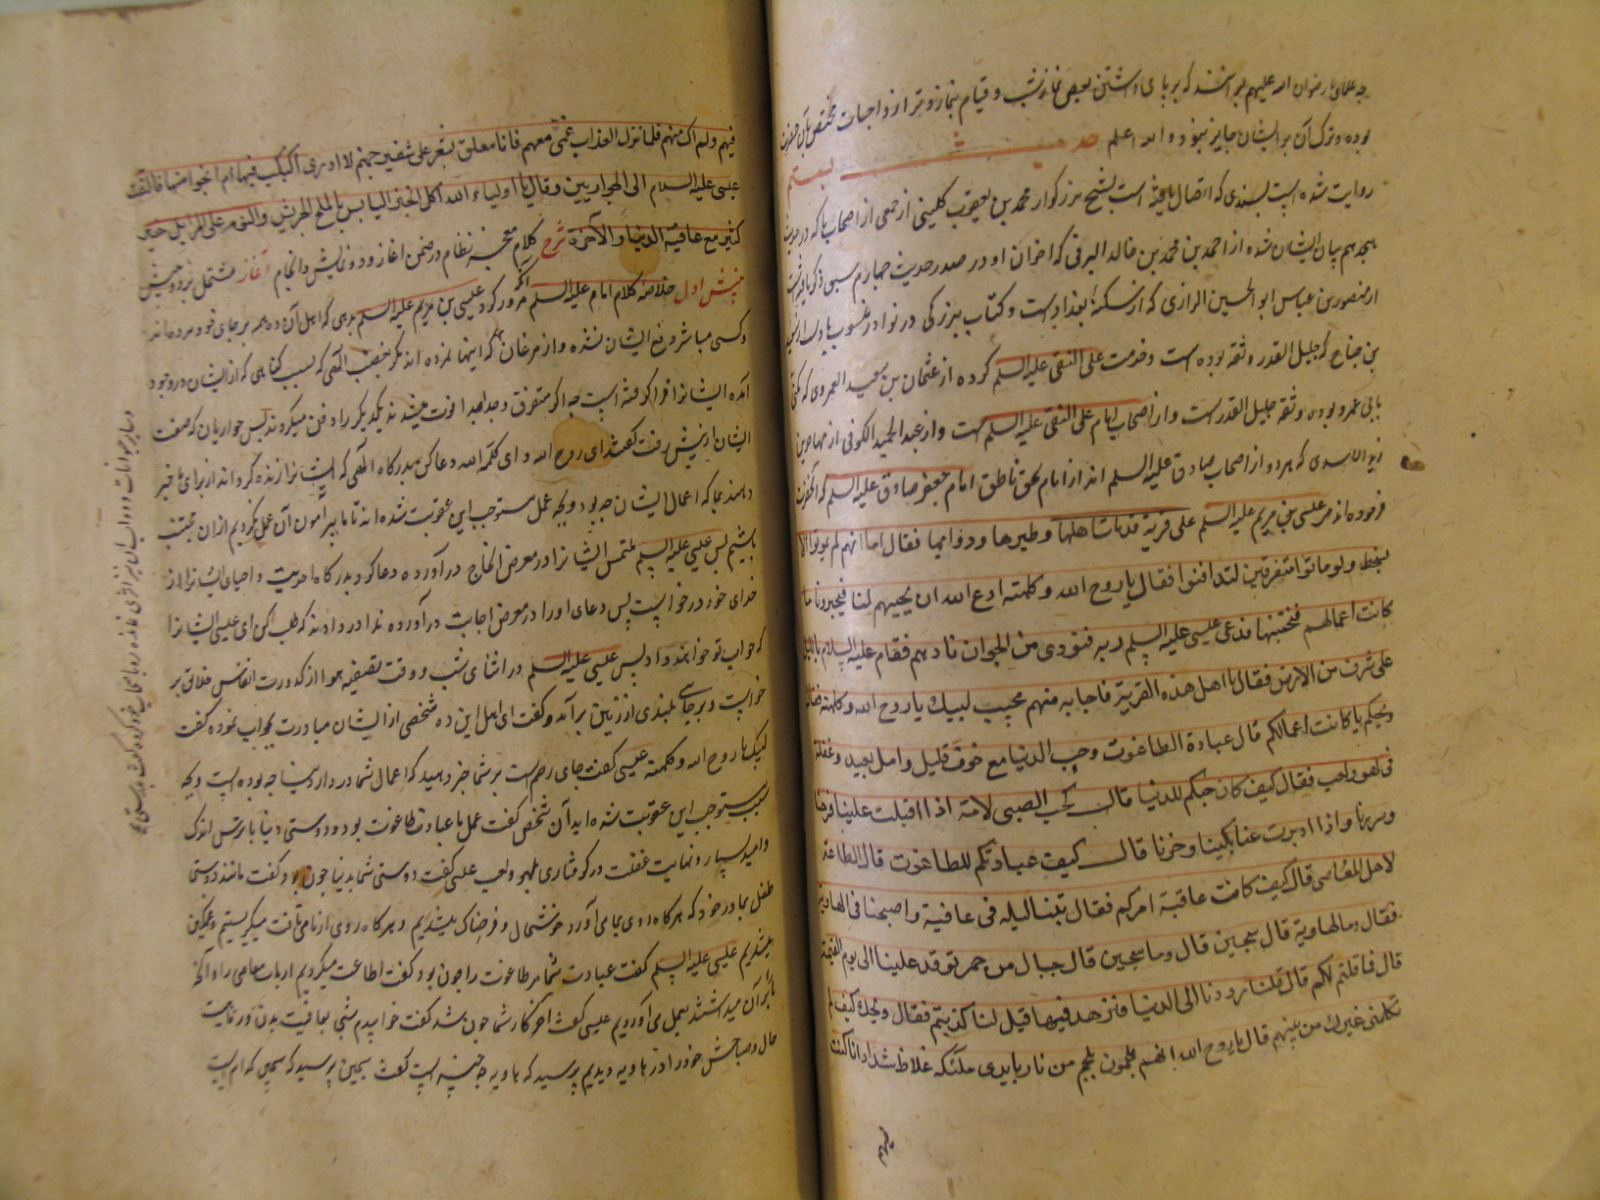 چه علمای ما رضوان الله علیهم برآنند که بر پای داشتن بعض نماز شب و قیام بنماز وتر از واجبات مختص بآن حضرت
بوده و ترک آن بر ایشان جایز نبوده والله اعلم حدیث بیستم
روایت شده است بسندی که اتصال یافته است بشیخ بزرگوار محمد بن یعقوب کلینی از جمعی از اصحاب ما که در حدیث
هجدهم بیان ایشان شده از احمد بن محمد بن خالد البرقی که احوال او در صدر حدیث چهارم سبق ذکر یافته است
از منصور بن عباس ابو الحسین الرازی که از سکنه بغداد است و کتاب بزرگی در نوادر منسوب باوست از سعید
بن جناح که جلیل القدر و ثقه بوده است و خدمت علی النقی علیه السلم کرده از عثمان بن سعید العمروی که مکنی
بابی عمرو بوده و ثقه جلیل القدر است و از اصحاب امام علی النقی علیه السلم است و از عبد الحمید الکوفی از مهاجر بن
زید الاسدی که هر دو از اصحاب صادق علیه السلم اند از امام بحق ناطق امام جعفر صادق علیه السلم که آنحضرت
فرموده اند مر عیسی بن مریم علیه السلم علی قریة قد مات اهلها و طیرها و دوابها فقال اما انهم لم یموتوا الا
بسخط و لو ماتوا متفرقین لتدافنوا فقال یا روح الله و کلمته ادع الله ان یحییهم لنا فیخبرونا ما
کانت اعمالهم فنجتنبها فدعی عیسی علیه السلم ربه فنودی من الجوان نادهم فقام علیه السلام باللیل
علی شرف من الارض فقال یا اهل هذه القریة فاجابه منهم مجیب لبیک یا روح الله و کلمته فقال
ویحکم ما کانت اعمالکم قال عبادة الطاغوت و حب الدنیا مع خوف قلیل و امل بعید و غفلة
فی لهو و لعب فقال کیف کان حبکم للدنیا قال کحب الصبی لامه اذا اقبلت علینا فرحنا
و سررنا و اذا ادبرت عنا بکینا و حزنا قال کیف عبادتکم للطاغوت قال الطاعة
لاهل المعاصی قال کیف کانت عاقبة امرکم فقال بتنا لیله فی عافیة و اصبحنا فی الهاویة
فقال و ما الهاویة قال سجین قال و ما سجین قال جبال من جمر توقد علینا الی یوم القیمة
قال فما قلتم لکم قال قلنا ردنا الی الدنیا فنزهد فیها قیل لنا کذبتم فقال ویحک کیف لم
تکلمنی غیرک من بینهم قال یا روح الله انهم ملجمون بلجم من نار بایدی ملئکه غلاظ شداد انا کنت
فیهم
فیهم و لم اک منهم فلما نزل العذاب عمنی معهم فانا معلق بشعر علی شفیر جهنم لا ادری اکبکب فیها ام انجوا منها فالتفت
عیسی علیه السلام الی الحواریین و قال یا اولیاء الله اکل الخبز الیابس بالملح الجریش والنوم علی المزابل خیر
کثیر مع عافیة الدنیا و الآخرة شرح کلام معجز نظام در ضمن اغاز و دو نمایش و انجام آغاز مشتمل بر دو پیش
پیش اول خلاصه کلام امام علیه السلم آنکه مرور کرد عیسی بن مریم علیه السلم بدهی که اهل آن ده همه بر جای خود مرده اند
و کسی مباشر دفع ایشان نشده و از مرغان که اینها نمرده اند مگر بغضب الهی که بسبب گناهی که از ایشان در وجود
آمده ایشانرا فرا گرفته است چه اگر متفرق و جدا جدا فوت میشدند یکدیگر را دفن میکردند پس حواریان که صفت
ایشان از پیش رفت گفتند ای روح الله و ای کلمة الله دعا کن بدرگاه الهی که ایشانرا زنده گرداند از برای ما خبر
دهند بما که اعمال ایشان چه بود و بچه عمل مستوجب این عقوبت شده اند تا ما پیرامون آن عمل نگردیم از ان مجتنب
باشیم پس عیسی علیه السلم ملتمس ایشانرا در معرض انجاح درآورده دعا کرد بدرگاه احدیت و احیای ایشانرا از
خدای خود درخواست پس دعای او را در معرض اجابت درآورده ندا در دادند که طلب کن ای عیسی ایشانرا
که جواب تو خواهند داد پس عیسی علیه السلم در اثنای شب و وقت تصفیه هوا از کدورت انفاس خلائق بر
خواست و بر جای بلندی از زمین برآمد و گفت ای اهل این ده شخصی از ایشان مبادرت بجواب نموده گفت
لبیک یا روح الله و کلمته عیسی گفت جای رحم است بر شما خبر دهید که اعمال شما در دار دنیا چه بوده است و بچه
سبب مستوجب این عقوبت شده اید آن شخص گفت عمل ما عبادت طاغوت بود و دوستی دنیا با ترس اندک
و امید بسیار و نهایت غفلت در گرفتاری لهو و لعب عیسی گفت دوستی شما بدنیا چون بود گفت مانند دوستی
طفل بمادر خود که هرگاه روی بما می آورد خوشحال و فرحناک میشدیم و هرگاه روی از ما می تافت میگریستیم و غمگین
میشدیم عیسی علیه السلم گفت عبادت شما مر طاغوت را چون بود گفت اطاعت میکردیم ارباب معاصی را و آنچه
ما را بر آن میداشتند بعمل می آوردیم عیسی گفت آخر کار شما چون شد گفت خوابیدم شبی بعافیت بدن و رفاهیت
حال و صباحش خود را در هاویه دیدیم پرسید که هاویه چه چیز است گفت سجین پرسید که سجین کدام است